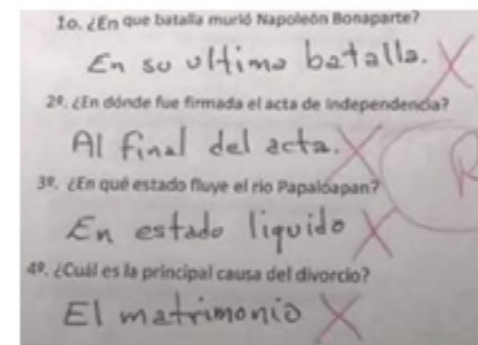 1o. ¿En que batalla murió Napoleón Bonaparte?
En su ultima batalla.
2º. ¿En dónde fue firmada el acta de Independencia?
Al final del acta.
3º. ¿En qué estado fluye el rio Papaloapan?
En estado liquido
4º. ¿Cuál es la principal causa del divorcio?
El matrimonio